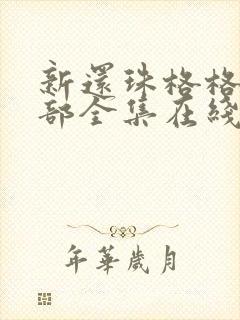 新還珠格格
部全集在綫
年華歲月